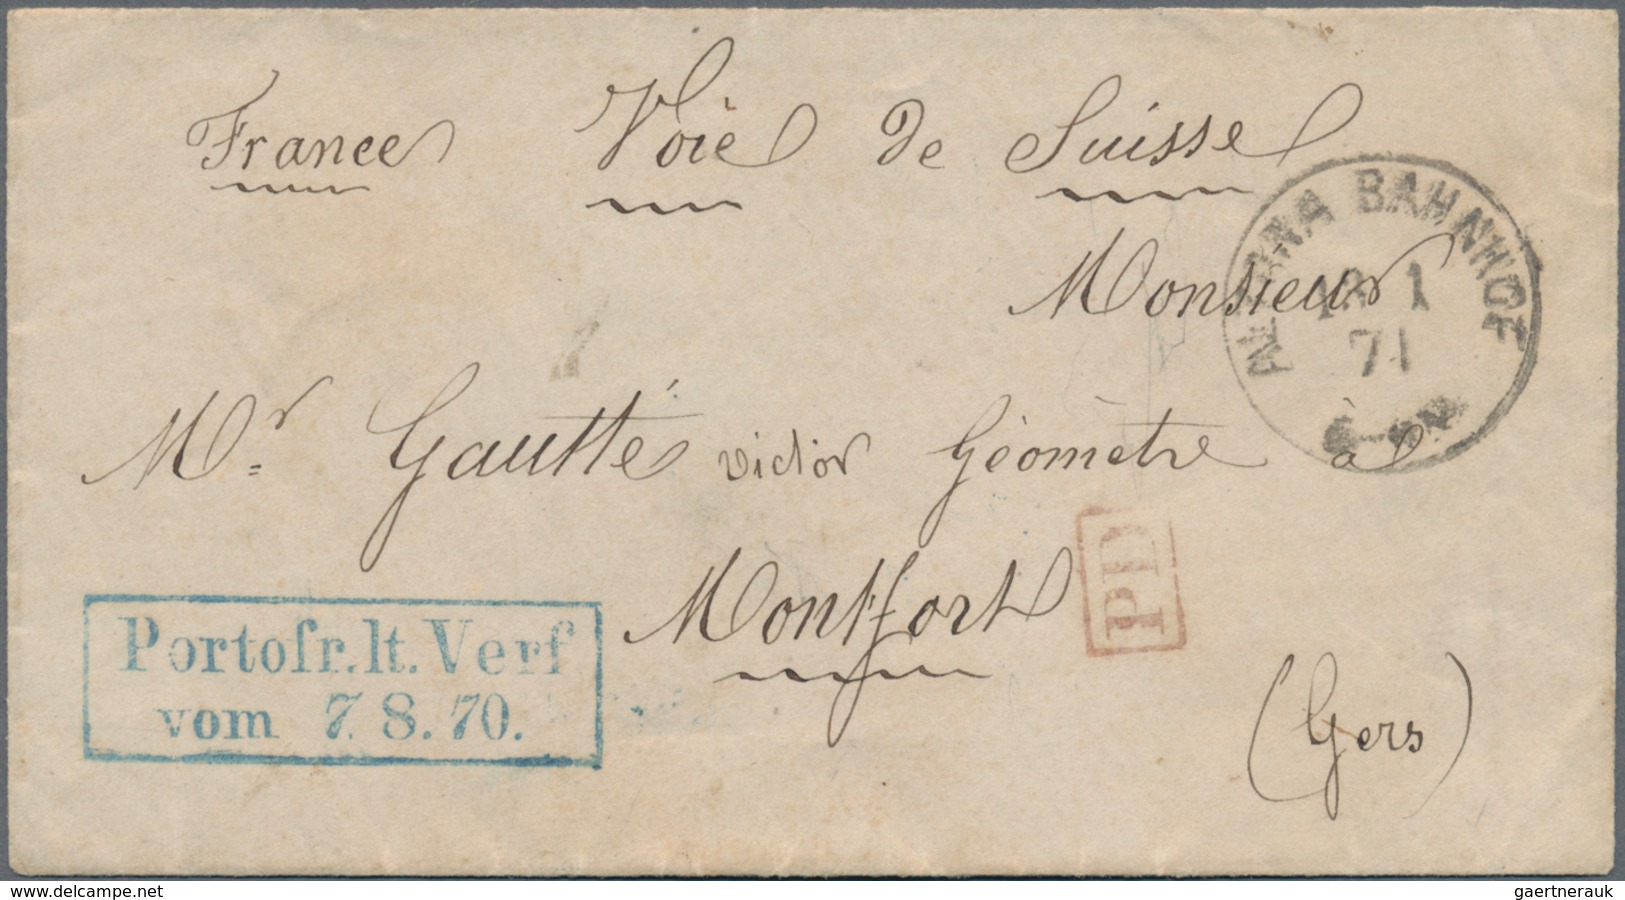 France Voie de Suisse
ALTONA BAHNHOF
1
71
Monsieur
Mr Gautté victor Géomètre à
Montfort
PD
(Gers)
Portofr.lt.Verf
vom 7.8.70.
delcampe.net
gaertnerauk